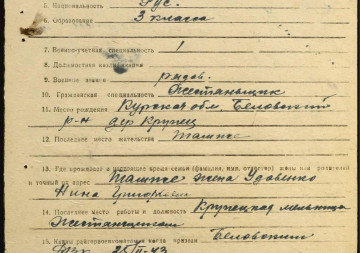 5. Национальность Рус.
6. Образование 3 класса
7. Военно-учетная специальность 1
8. Должностная квалификация
9. Военное звание рядов.
10. Гражданская специальность Жестянщик
11. Место рождения Курская обл. Беловский
р-н дер Крупец
12. Последнее место жительства Там же
13. Где проживает в настоящее время семья (фамилия, имя, отчество) жены или родителей
и точный их адрес Там же жена Удовенко
Нина
14. Последнее место работы и должность Крупецкая мельница
Жестянщиком
15. Каким райгорвоенкоматом когда призван Беловским
РВК 25 II-43